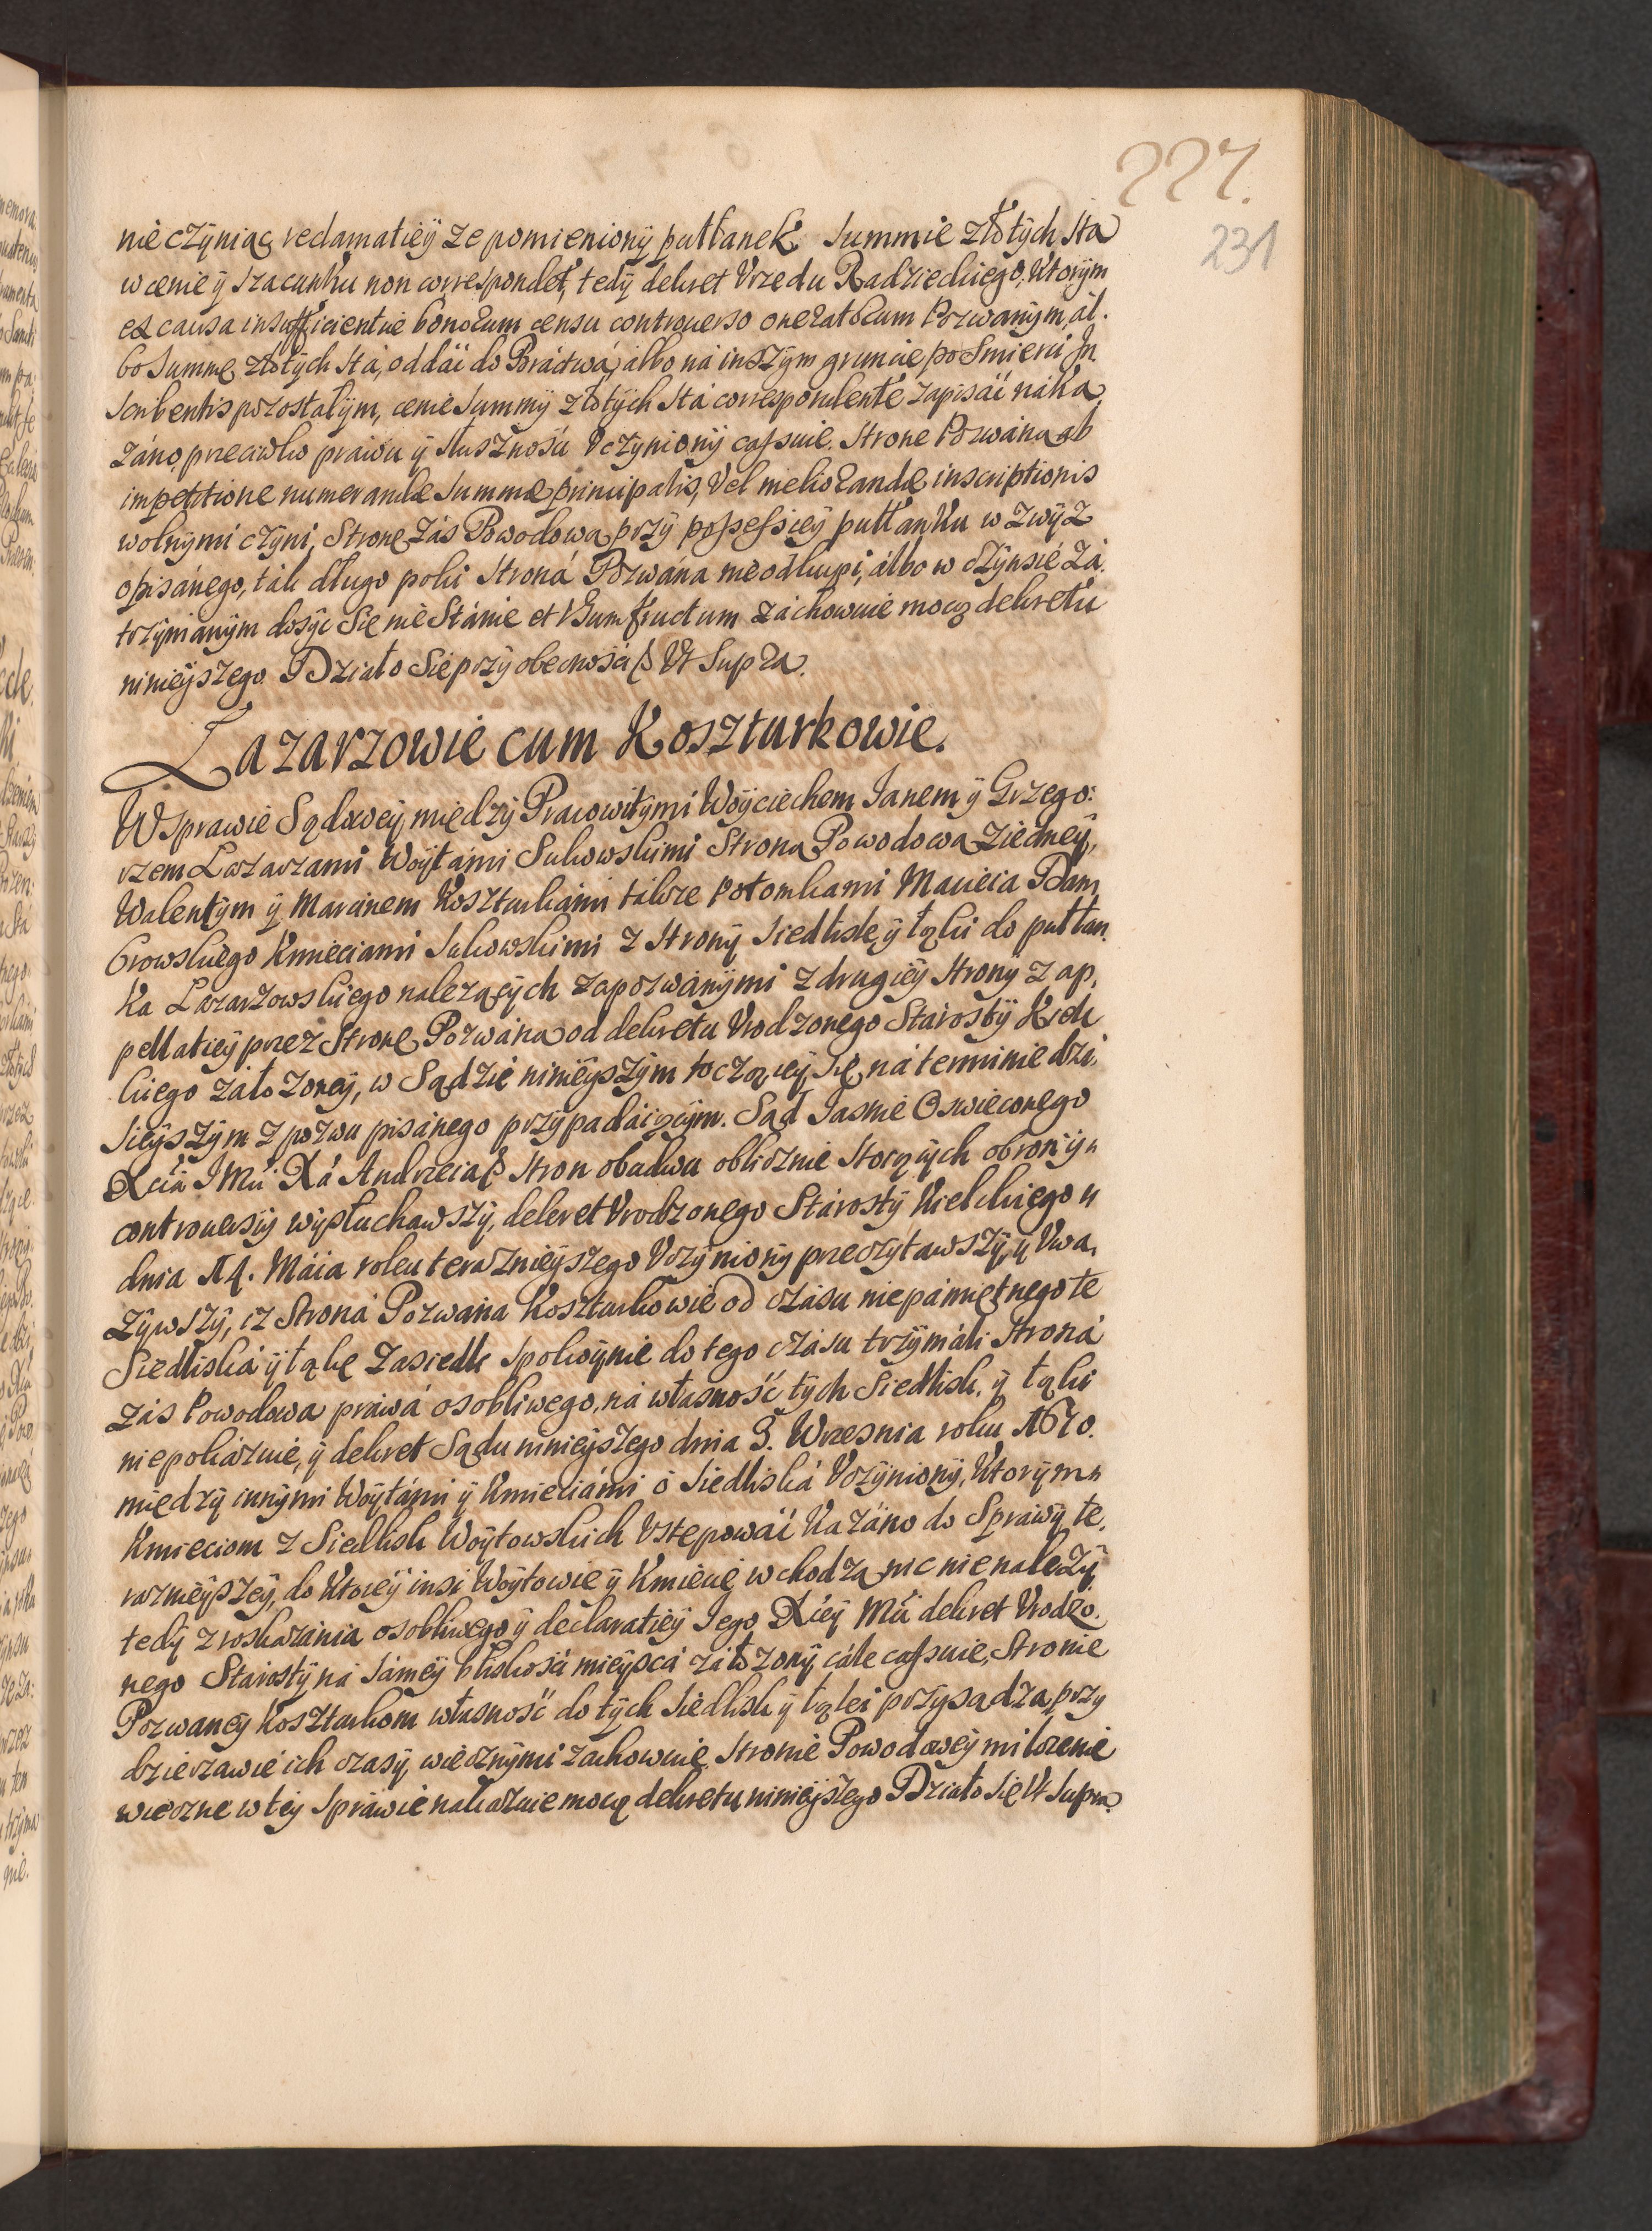 227.
231
nie czÿniąc reclamatiëÿ ze pomienionÿ pułłanek Summie złotÿch sta
w cenie ÿ szacunku non correspondet, tedÿ dekret Vrzedu Radzieckiego, ktorÿm
ex causa insufficientiæ bonorum censu controuerso oneratorum Pozwanÿm, ál.
bo Summę złotÿch stá, oddáć do Bráctwá, álbo ná inszÿm gruncie po Smierci In
scribentis pozostałÿm, cenie Summÿ złotÿch stá correspondente zapisáć náká,
záno, przeciwko práwu ÿ słusznośći Vczÿnionÿ cassuie. Strone Pozwáną ab
impetitione numerandæ Summæ principalis, Vel meliorandæ inscriptionis
wolnÿmi czÿni, Stronę zás Powodową przÿ possessiëÿ pułłanku w zwÿż
opisánego, ták długo poki Stroná Pozwána nie odkupi, álbo w czÿnsie zá,
trzÿmanÿm dosÿć Się nie Stánie et Vsumfructum záchowuie mocą dekretu
ninieÿszego. Działo Sie przÿ obecnośći &c Vt Supra.
Łazarzowie cum Koszturkowie.
W Sprawie Sądoweÿ międzÿ Pracowitÿmi Woÿciechem Janem ÿ Grzego:
rzem Łazarzami Woÿtámi Sukowskimi Stroną Powodową z iedneÿ,
Walentÿm ÿ Marcinem Koszturkámi także Potomkami Macieia Dam,
browskiego Kmieciami Sukowskimi z Stronÿ Siedlisk ÿ łąki do pułłan,
ka Łazarzowskiego nalezącÿch zapozwánÿmi z drugiëÿ Stronÿ z ap,
pellatiëÿ przez Stronę Pozwáną od dekretu Vrodzonego Stárostÿ Kielc
kiego záłożoneÿ, w Sądzie ninieÿszÿm toczącëÿ się, ná terminie dzi,
sieÿszÿm z pozwu pisánego przÿpadáiącÿm. Sąd Jasnie Oswieconego
Xcia JMci Xá Andrzeia &c Stron obudwu oblicznie stoiącÿch obronÿ ÿ
controuersÿe wÿsłuchawszÿ, dekret Vrodzonego Stárostÿ Kielckiego
dnia 14. Máia roku teraznieÿszego Vczÿnionÿ przeczÿtawszÿ, ÿ Vwa,
żÿwszÿ, iż Stroná Pozwána Koszturkowie od czásu niepámiętnego te
Siedliská ÿ łąkę zasiedli spokoÿnie do tego czásu trzÿmáli Stroná
zás Powodowa práwá osobliwego, ná własność tÿch Siedlisk, ÿ łąki
niepokázuie, ÿ dekret Sądu ninieÿszego dnia 3. Wrzesnia roku 1670.
międzÿ innÿmi Woÿtámi ÿ Kmieciámi o Siedliská Vczÿnionÿ, ktorÿm
Kmieciom z Siedlisk Woÿtowskich Vstepowáć kazáno do Sprawÿ te,
raznieÿszeÿ, do ktorëÿ insi Woÿtowie ÿ Kmiecie wchodzą nic nie należÿ,
tedÿ z roskazania osobliwego ÿ declaratiëÿ Jego Xcëÿ Mci dekret Vrodzo,
nego Stárostÿ ná sámeÿ bliskośći mieÿscá záłożonÿ cále cassuie, Stronie
Pozwaneÿ Koszturkom własność do tÿch Siedlisk ÿ łąki przÿsądza, przÿ
dzierzawie ich czasÿ wiecznÿmi zachowuie, Stronie Powodoweÿ milczenie
wieczne w tëÿ Spráwie nakázuie mocą dekretu ninieÿszego Działo Się Vt Supra.